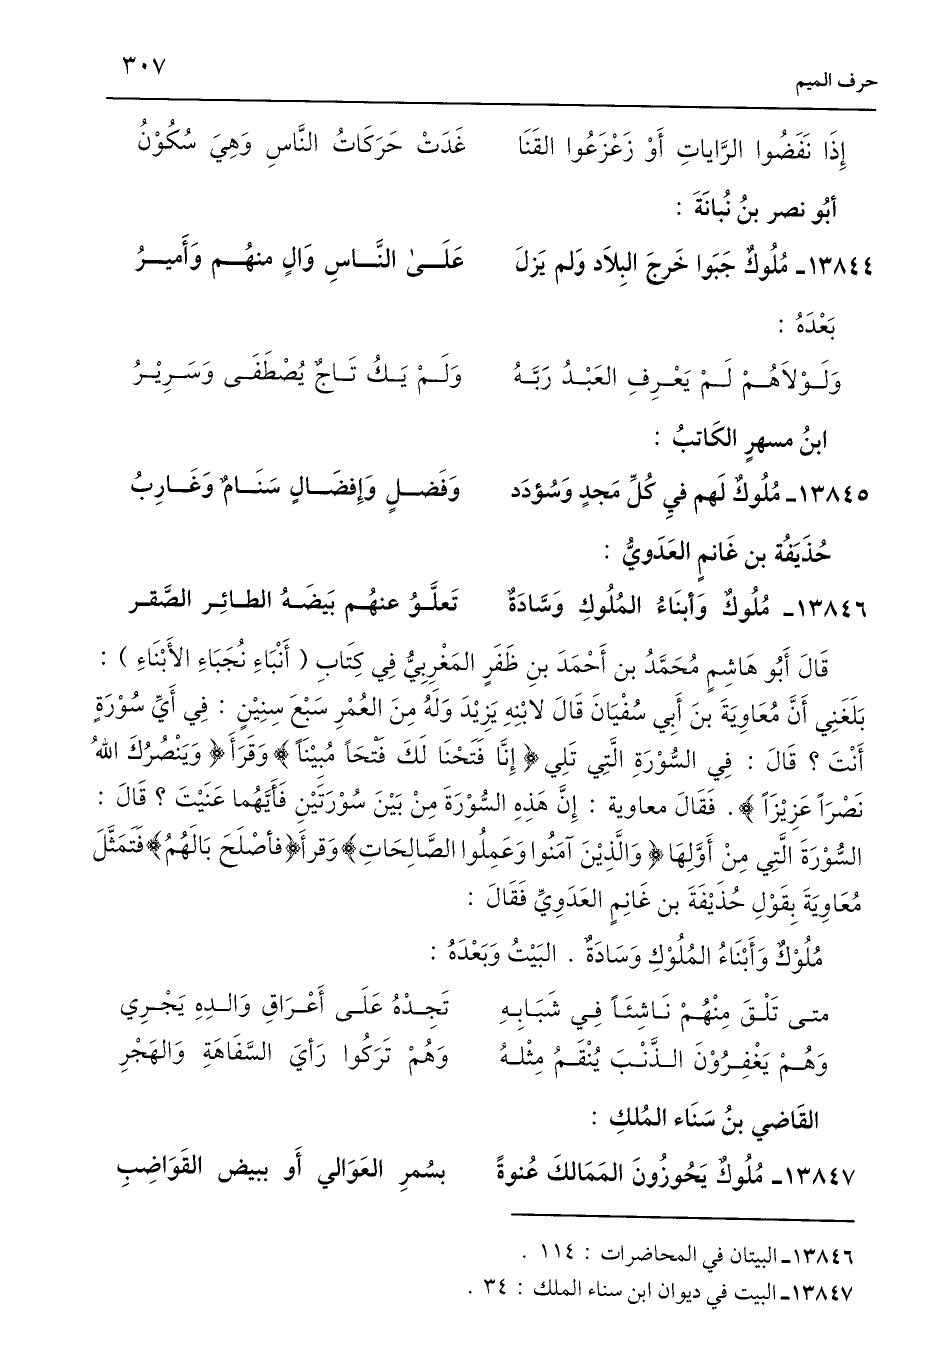 حرف الميم ٣٠٧
إِذَا نَفَضُوا الرَّايَاتِ أَوْ زَعْزَعُوا القَنَا غَدَتْ حَرَكَاتُ النَّاسِ وَهِيَ سُكُوْنُ
أبُو نصر بنُ نُبَاتَةَ :
١٣٨٤٤ـ مُلُوكٌ جَبَوا خَرجَ البِلَاد وَلم يَزلَ عَلَـىٰ النَّـاسِ وَالٍ منهُـم وَأَميـرُ
بَعْدَهُ :
وَلَـوْلاَهُـمْ لَـمْ يَعْـرِفِ العَبْـدُ رَبَّـهُ وَلَـمْ يَـكُ تَـاجٌ يُصْطَفَـى وَسَـرِيْـرُ
ابنُ مسهرٍ الكَاتبُ :
١٣٨٤٥ـ مُلُوكٌ لَهم فيِ كُلِّ مَجدٍ وَسُؤدَد وَفَضـلٍ وَإِفضَـالٍ سَنَـامٌ وَغَـاربُ
حُذَيفَة بن غَانمٍ العَدَويُّ :
١٣٨٤٦ـ مُلُوكٌ وَأبنَاءُ المُلُوكِ وَسَادَةٌ تَعلَّـقُ عنهُـم بَيضَـهُ الطـائِـر الصَّقـر
قَالَ أَبُو هَاشِمٍ مُحَمَّدُ بن أَحْمَدَ بن ظَفَرٍ المَغْرِبِيُّ فِي كِتَابِ ( أَنْبَاءِ نُجَبَاءِ الأَبْنَاءِ ) :
بَلَغَنِي أَنَّ مُعَاوِيَةَ بنَ أَبِي سُفْيَانَ قَالَ لابْنِهِ يَزِيْدَ وَلَهُ مِنَ العُمْرِ سَبْعَ سِنِيْنٍ : فِي أَيِّ سُوْرَةٍ
أَنْتَ ؟ قَالَ : فِي السُّوْرَةِ الَّتِي تَلِي ﴿ إِنَّا فَتَحْنَا لَكَ فَتْحَاً مُبِيْنَاً ﴾ وَقَرَأَ ﴿ وَيَنْصُرُكَ اللهُ
نَصْرَاً عَزِيْزَاً ﴾ . فَقَالَ معاوية : إِنَّ هَذِهِ السُّوْرَةَ مِنْ بَيْنَ سُوْرَتَيْنِ فَأَيَّهُما عَنَيْتَ ؟ قَالَ :
السُّوْرَةَ الَّتِي مِنْ أَوَّلِهَا ﴿ وَالَّذِيْنَ آمَنُوا وَعَمِلُوا الصَّالِحَاتِ ﴾ وَقرأَ ﴿ فأصْلَحَ بَالَهُمُ ﴾ فَتَمَثَّلَ
مُعَاوِيَةَ بِقَوْلِ حُذَيْفَةَ بن غَانِمٍ العَدَوِيِّ فَقَالَ :
مُلُوْكٌ وَأَبْنَاءُ المُلُوْكِ وَسَادَةٌ . البَيْتُ وَبَعْدَهُ :
متـى تَلْـقَ مِنْهُـمْ نَـاشِئَـاً فِـي شَبَـابِـهِ تَجِـدْهُ عَلَـى أَعْـرَاقِ وَالـدِهِ يَجْـرِي
وَهُـمْ يَغْفِـرُوْنَ الـذَّنْـبَ يُنْقَـمُ مِثْلـهُ وَهُمْ تَرَكُوا رَأيَ السَّفَاهَةِ وَالهَجْرِ
القَاضي بنُ سَنَاء المُلكِ :
١٣٨٤٧ـ مُلُوكٌ يَحُوزُونَ المَمَالكَ عُنوةً بسُمرِ العَوَالي أَو ببيض القَوَاضِبِ
١٣٨٤٦ـ البيتان في المحاضرات : ١١٤ .
١٣٨٤٧ـ البيت في ديوان ابن سناء الملك : ٣٤ .